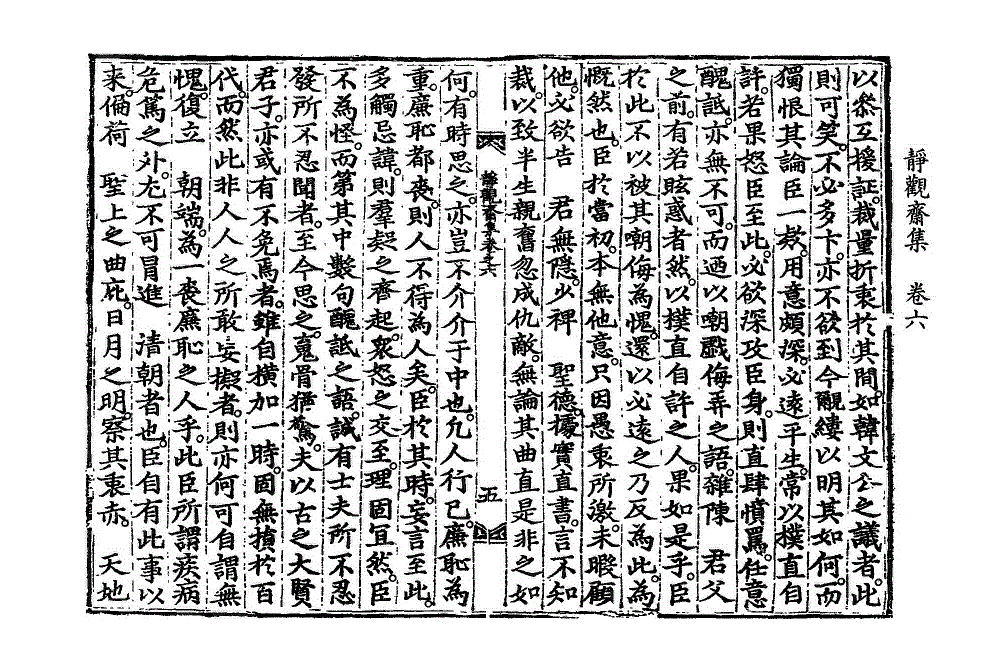 靜觀齋集　卷六
以參互援証。裁量折衷於其間。如韓文公之議者。此
則可笑。不必多卞。亦不欲到今覼縷以明其如何。而
獨恨其論臣一款。用意頗深。必遠平生。常以撲直自
許。若果怒臣至此。必欲深攻臣身。則直肆憤罵。任意
醜詆。亦無不可。而迺以嘲戱侮弄之語。雜陳　君父
之前。有若眩惑者然。以撲直自許之人。果如是乎。臣
於此不以被其嘲侮為愧。還以必遠之乃反為此為
慨然也。臣於當初。本無他意。只因愚衷所激。未暇顧
他。必欲告　君無隱。少裨　聖德。攄實直書。言不知
裁。以致半生親舊忽成仇敵。無論其曲直是非之如
靜觀齋集卷之六
五
何。有時思之。亦豈不介介于中也。凢人行已。廉恥為
重。廉恥都喪。則人不得為人矣。臣於其時。妄言至此。
多觸忌諱。則羣疑之齊起。衆怒之交至。理固冝然。臣
不為怪。而第其中數句醜詆之語。誠有士夫所不忍
發所不忍聞者。至今思之。䰟骨猶驚。夫以古之大賢
君子。亦或有不免焉者。雖自橫加一時。固無損於百
代。而然此非人人之所敢妄擬者。則亦何可自謂無
愧。復立　朝端。為一喪廉恥之人乎。此臣所謂疾病
危篤之外。尤不可冒進　清朝者也。臣自有此事以
来。偏荷　聖上之曲庇。日月之明。察其衷赤。　天地